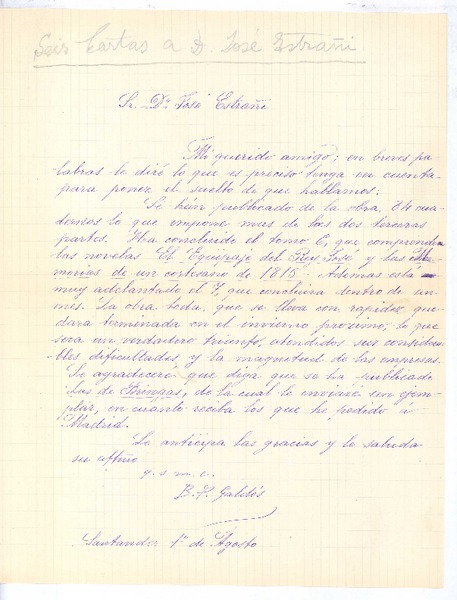 Seis Cartas a D. José Estrañi
Sr. Dn José Estrañi
Mi querido amigo: en breves pa
labras le diré lo que es preciso tenga en cuenta
para poner el suelto de que hablamos.
Se han publicado de la obra, 24 cua
dernos lo que supone mas de las dos terceras
partes. Ha concluido el tomo 6, que comprende
las novelas El Equipaje del Rey José y las Me
morias de un cortesano de 1815. Ademas está
muy adelantado el 7, que concluira dentro de un
mes. La obra toda, que se lleva con rapidez que
dara terminada en el invierno proximo; lo que
sera un verdadero triunfo, atendidas sus considera
bles dificultades y la magnitud de las empresas.
Le agradeceré que diga que se ha publicado
La de Bringas, de la cual le enviaré un ejem
plar, en cuanto reciba los que he pedido a
Madrid.
Le anticipa las gracias y le saluda
su affmo
q. s. m. b.
B. P. Galdós
Santander 1º de Agosto